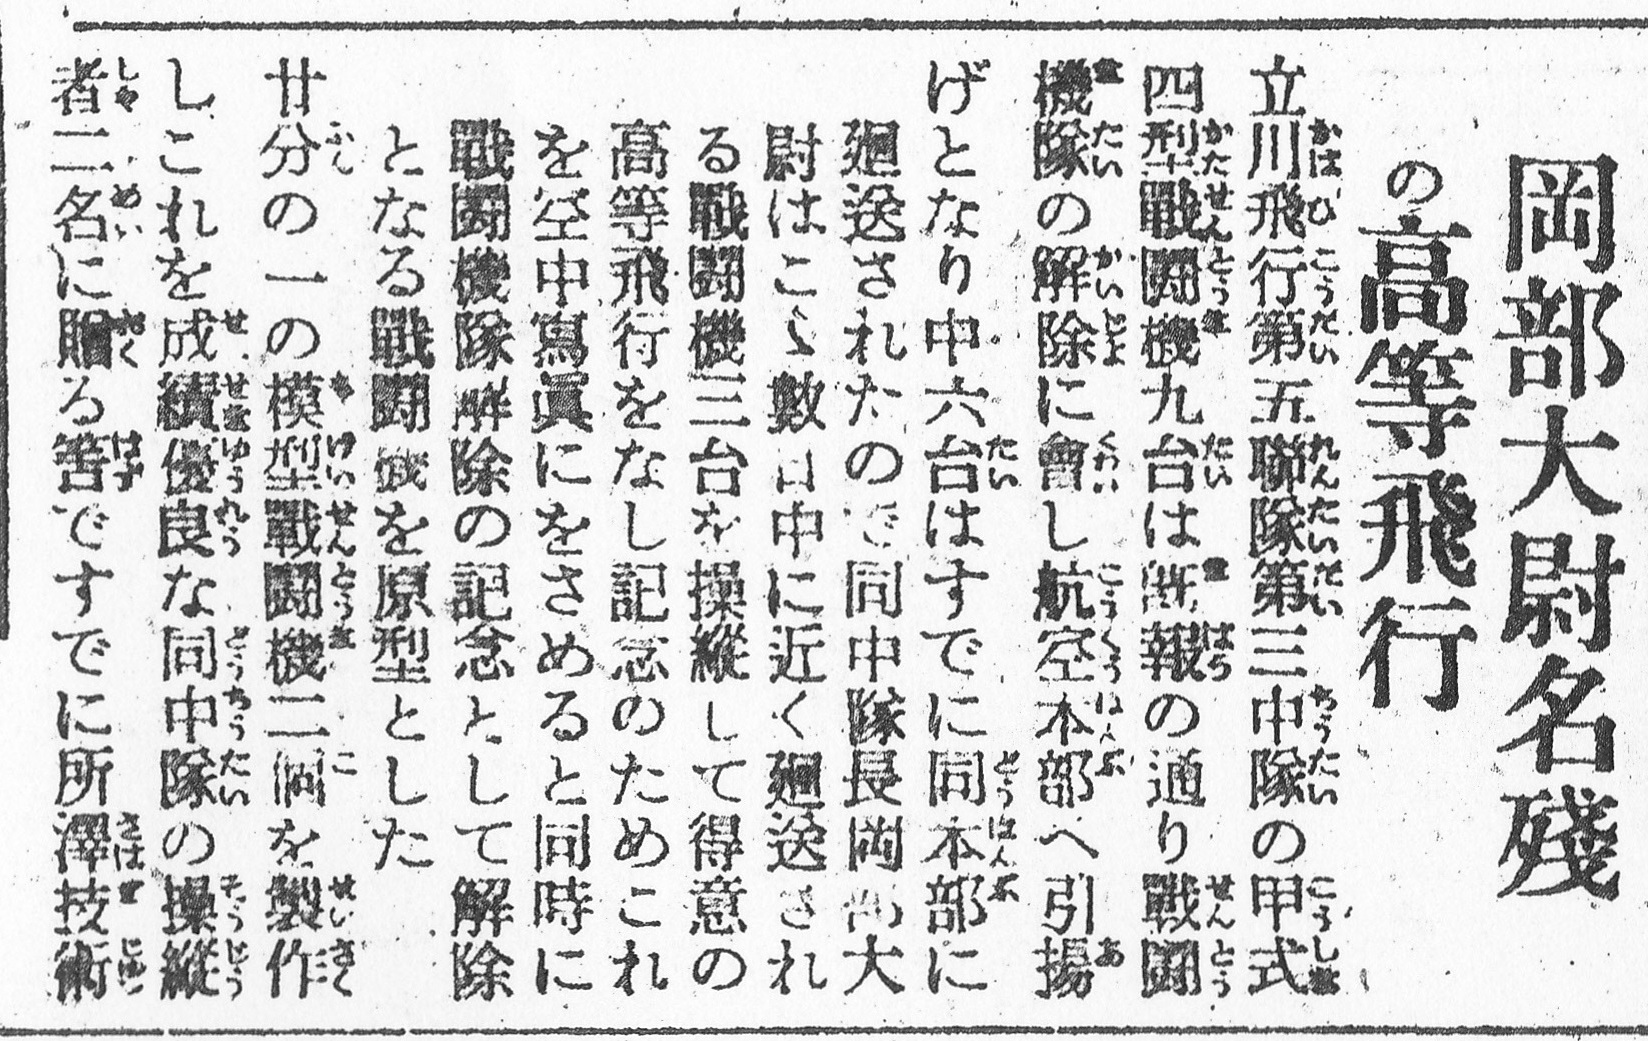 岡部大尉名殘
の高等飛行
立川飛行第五聯隊第三中隊の甲式
四型戰鬪機九台は既報の通り戰鬪
機隊の解除に會し航空本部へ引揚
げとなり中六台はすでに同本部に
廻送されたので同中隊長岡部大
尉はこゝ數日中に近く廻送され
る戰鬪機三台を操縱して得意の
高等飛行をなし記念のためこれ
を空中寫眞にをさめると同時に
戰鬪機隊解除の記念として解除
となる戰鬪機を原型とした
廿分の一の模型戰鬪機二個を製作
しこれを成績優良な同中隊の操縱
者二名に贈る筈ですでに所澤技術